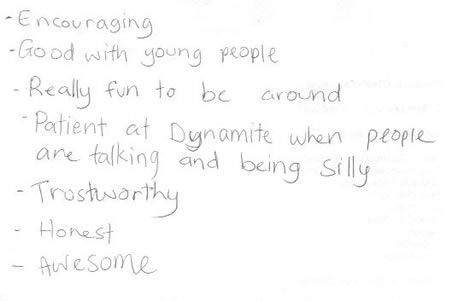 - Encouraging
- Good with young people
- Really fun to be around
- Patient at Dynamite when people
are talking and being silly
- Trustworthy
- Honest
- Awesome